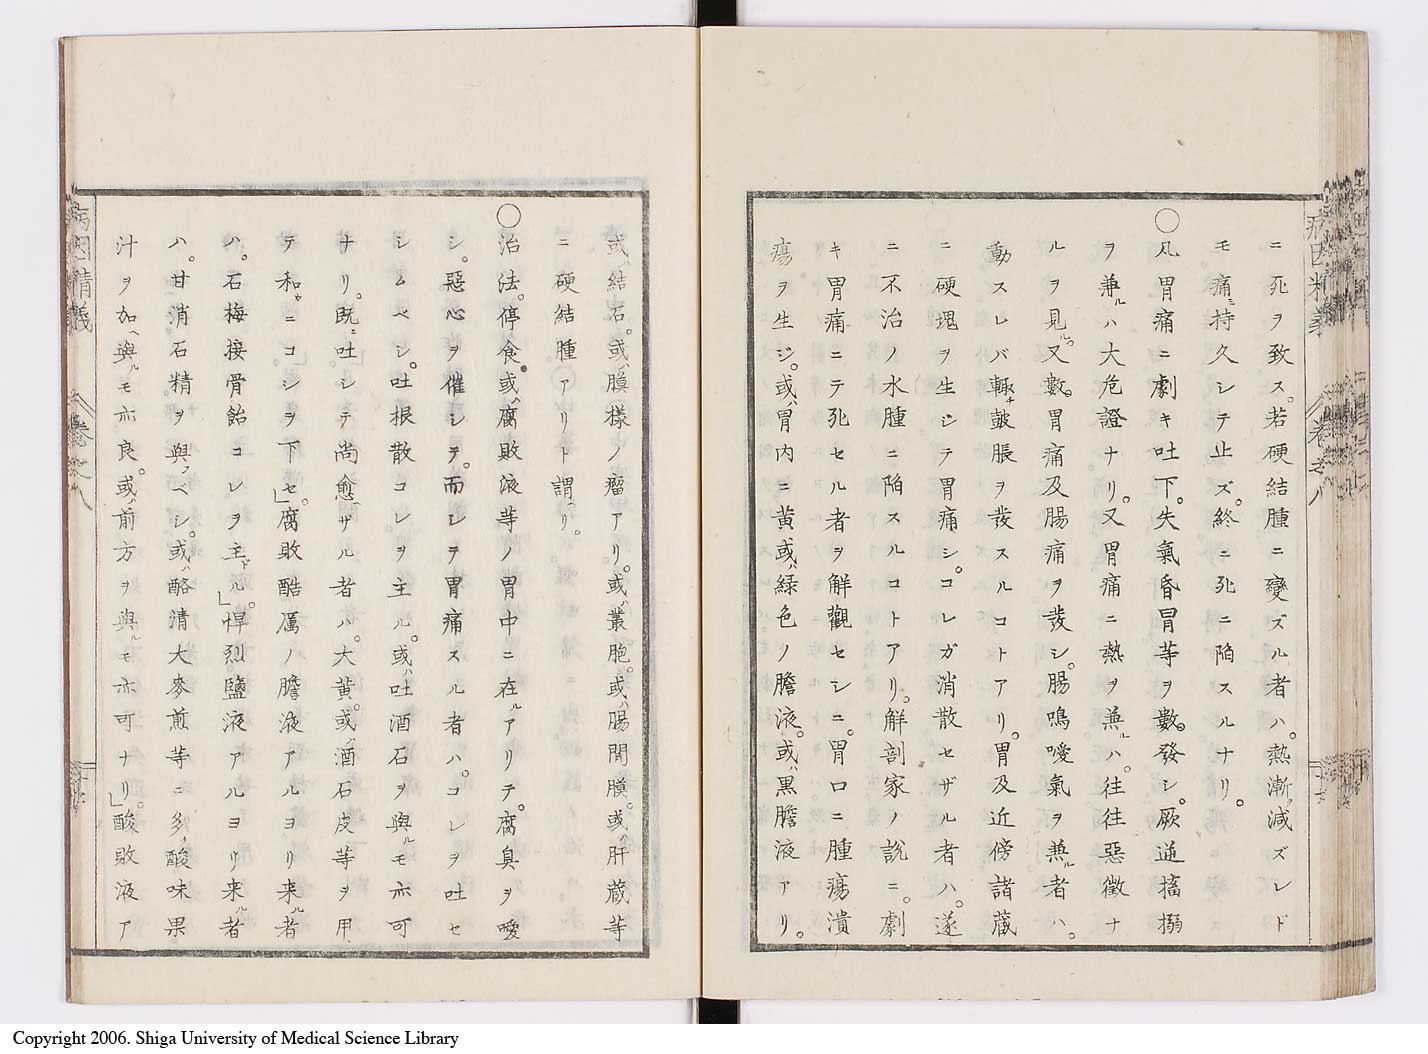 ニ死ヲ致ス。若硬結腫ニ變ズル者ハ。熱漸ク減ズレド
モ痛ミ持久シテ止ズ。終ニ死ニ陥スルナリ。
○凡胃痛ニ劇キ吐下。失氣昏冒等ヲ數〻發シ。厥逆搐搦
ヲ兼ルハ大危證ナリ。又胃痛ニ熱ヲ兼ルハ。往往惡徴ナ
ルヲ見ル。又數〻胃痛及腸痛ヲ發シ。腸鳴噯氣ヲ兼ル者ハ。
動スレバ輙チ皷脹ヲ發スルコトアリ。胃及近傍諸蔵
ニ硬塊ヲ生ジテ胃痛シ。コレガ消散セザル者ハ。遂
ニ不治ノ水腫ニ陥スルコトアリ。解剖家ノ説ニ。劇
キ胃痛ニテ死セル者ヲ解觀セシニ。胃口ニ腫瘍潰
瘍ヲ生ジ。或ハ胃内ニ黄或ハ緑色ノ膽液。或ハ黒膽液アリ。
或ハ結石。或ハ膜様ノ瘤アリ。或ハ叢胞。或ハ腸間膜。或ハ肝蔵等
ニ硬結腫アリト謂ヘリ。
○治法。停食或ハ腐敗液等ノ胃中ニ在ルアリテ。腐臭ヲ噯
シ。惡心ヲ催シテ。而シテ胃痛スル者ハ。コレヲ吐セ
シムベシ。吐根散コレヲ主ル。或ハ吐酒石ヲ與ルモ亦可
ナリ。既ニ吐シテ尚愈ザル者ハ。大黄或ハ酒石皮等ヲ用
テ和ヤニコシヲ下セ。」腐敗酷厲ノ膽液アルヨリ来ル者
ハ。石梅接骨飴コレヲ主ドル。」悍烈鹽液アルヨリ来ル者
ハ。甘消石精ヲ與フベシ。或ハ酪清大麥煎等ニ多ク酸味果
汁ヲ加ヘ與ルモ亦良。或ハ前方ヲ與ルモ亦可ナリ。」酸敗液ア
病因精義
卷之八
病因精義
卷之八